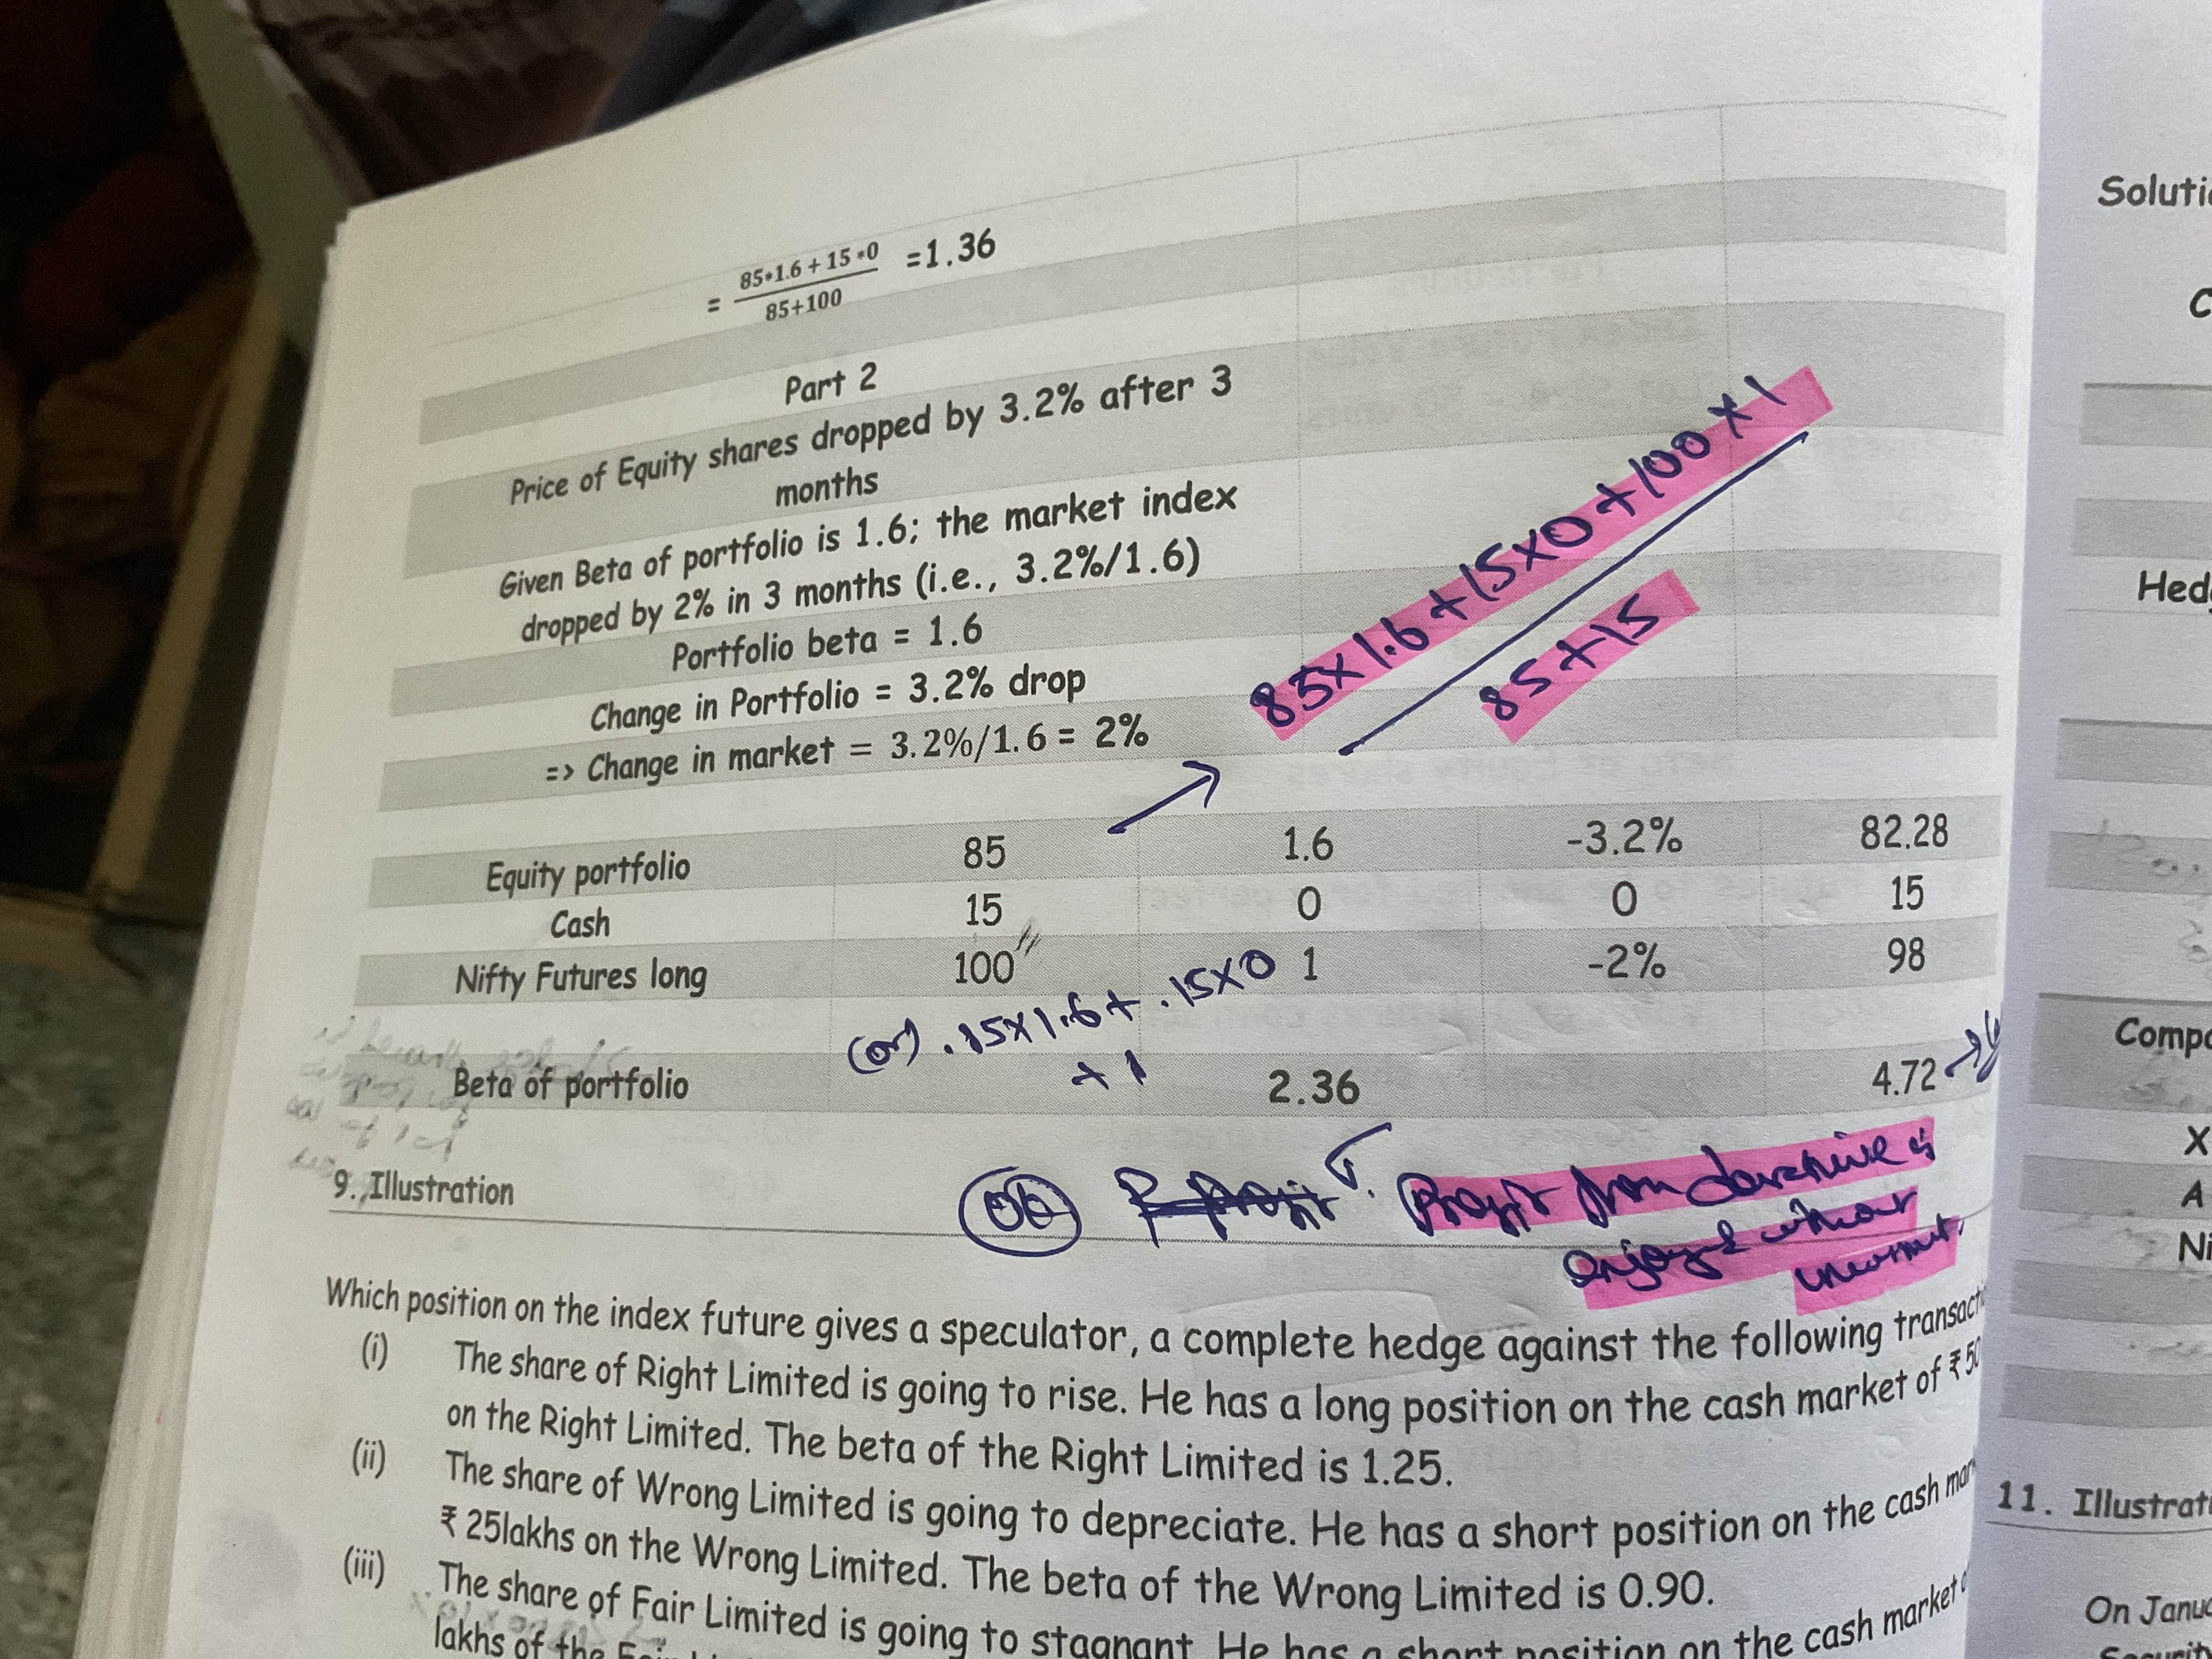 = 85*1.6 + 15 *0 / 85+100 =1.36
Part 2
Price of Equity shares dropped by 3.2% after 3
months
Given Beta of portfolio is 1.6; the market index
dropped by 2% in 3 months (i.e., 3.2%/1.6)
Portfolio beta = 1.6
Change in Portfolio = 3.2% drop
=> Change in market = 3.2%/1.6 = 2%
85x1.6 + 15x0 + 100 x 1
85+15
Equity portfolio 85 1.6 -3.2% 82.28
Cash 15 0 0 15
Nifty Futures long 100 1 -2% 98
(or) .85x1.6+ .15x0
+ 1
Beta of portfolio 2.36 4.72
Profit from derivative is
enjoyed without
9. Illustration
Which position on the index future gives a speculator, a complete hedge against the following
(i) The share of Right Limited is going to rise. He has a long position on the cash market of ₹
on the Right Limited. The beta of the Right Limited is 1.25.
(ii) The share of Wrong Limited is going to depreciate. He has a short position on the cash
₹ 25lakhs on the Wrong Limited. The beta of the Wrong Limited is 0.90.
(iii) The share of Fair Limited is going to stagnant. He has a short position on the cash market
lakhs of the
Soluti
C
Hed
Comp
X
A
Ni
11. Illustrat
On Janu